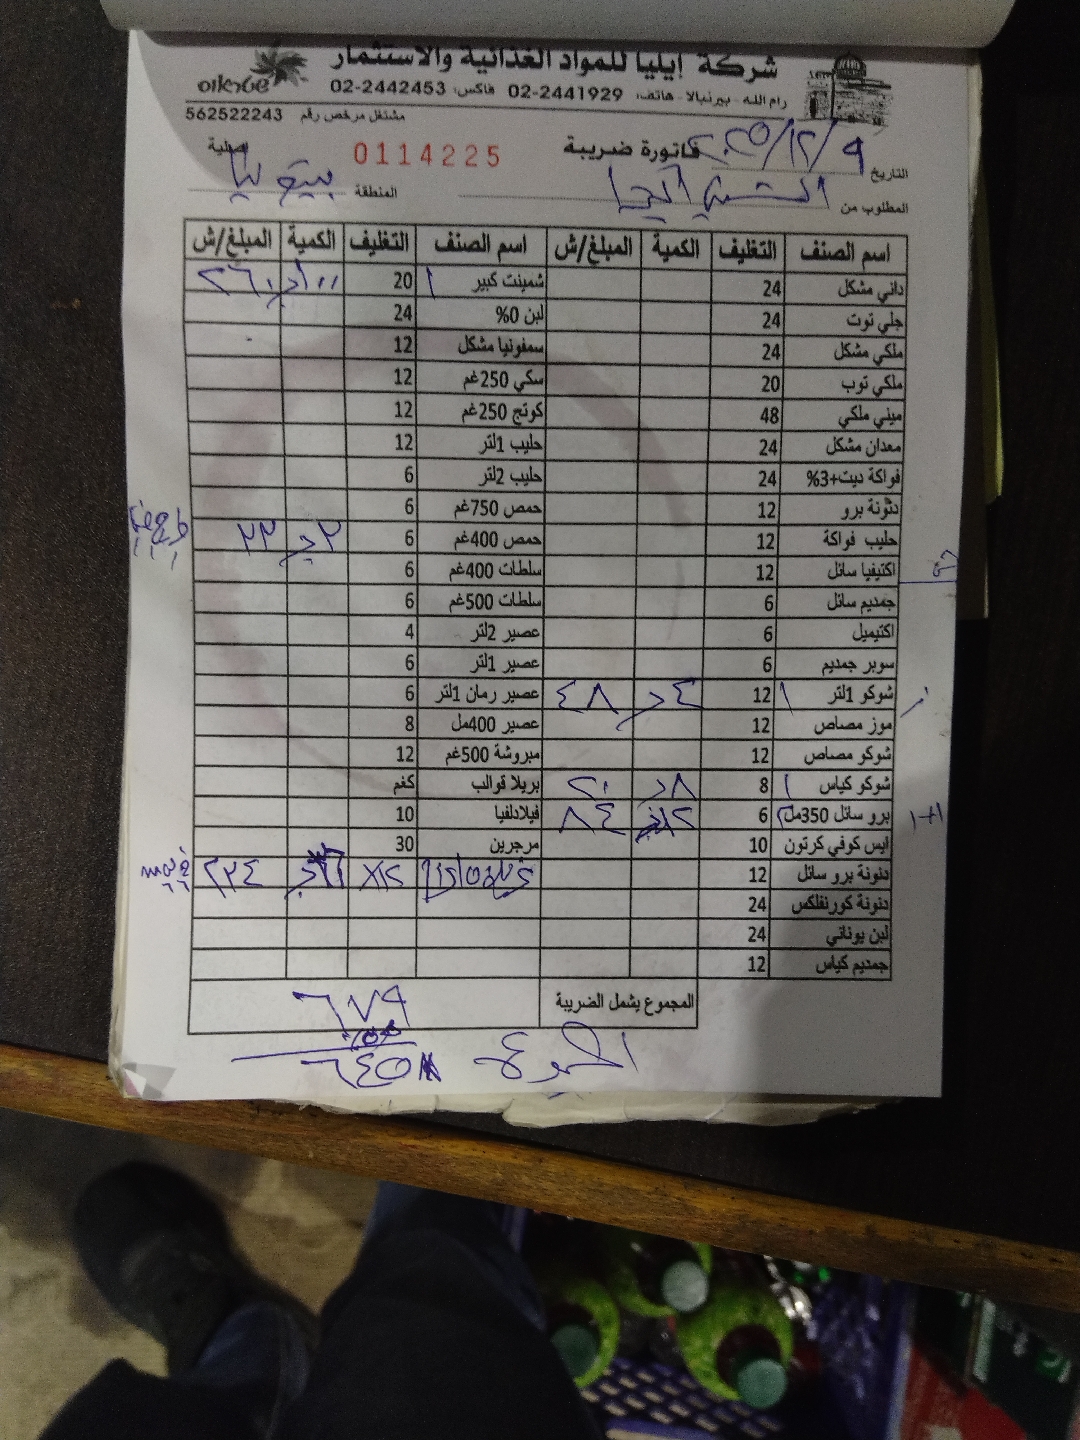 شركة إيليا للمواد الغذائية والاستثمار
رام الله - بيرنبالا - هاتف: 02-2441929 فاكس: 02-2442453
مشتغل مرخص رقم 562522243
فاتورة ضريبة 0114225 أصلية
التاريخ ٢٠٢٥/١٢/٩
المطلوب من
المنطقة
اسم الصنف التغليف الكمية المبلغ/ش اسم الصنف التغليف الكمية المبلغ/ش
داني مشكل 24 شمينت كبير 20 ٢٦٠
جلي توت 24 لبن 0% 24
ملكي مشكل 24 سمفونيا مشكل 12
ملكي توب 20 سكي 250غم 12
ميني ملكي 48 كوتج 250غم 12
معدان مشكل 24 حليب 1لتر 12
فواكة ديت+3% 24 حليب 2لتر 6
دنونة برو 12 حمص 750غم 6
حليب فواكة 12 حمص 400غم 6 ٢ ٢٢
اكتيفيا سائل 12 سلطات 400غم 6
جمديم سائل 6 سلطات 500غم 6
اكتيميل 6 عصير 2لتر 4
سوبر جمديم 6 عصير 1لتر 6
شوكو 1لتر ١ 12 ٤ ٤٨ عصير رمان 1لتر 6
موز مصاص 12 عصير 400مل 8
شوكو مصاص 12 مبروشة 500غم 12
شوكو كياس ١ 8 ٨ ٢٠ بريلا قوالب كغم
برو سائل 350مل ٢ 6 ١٢ ٨٤ فيلادلفيا 10
١+١
ايس كوفي كرتون 10 مرجرين 30
دنونة برو سائل 12 ٢٣٤
دنونة كورنفلكس 24
لبن يوناني 24
جمديم كياس 12
المجموع يشمل الضريبة ٦٧٩
المجموع ٦٤٥